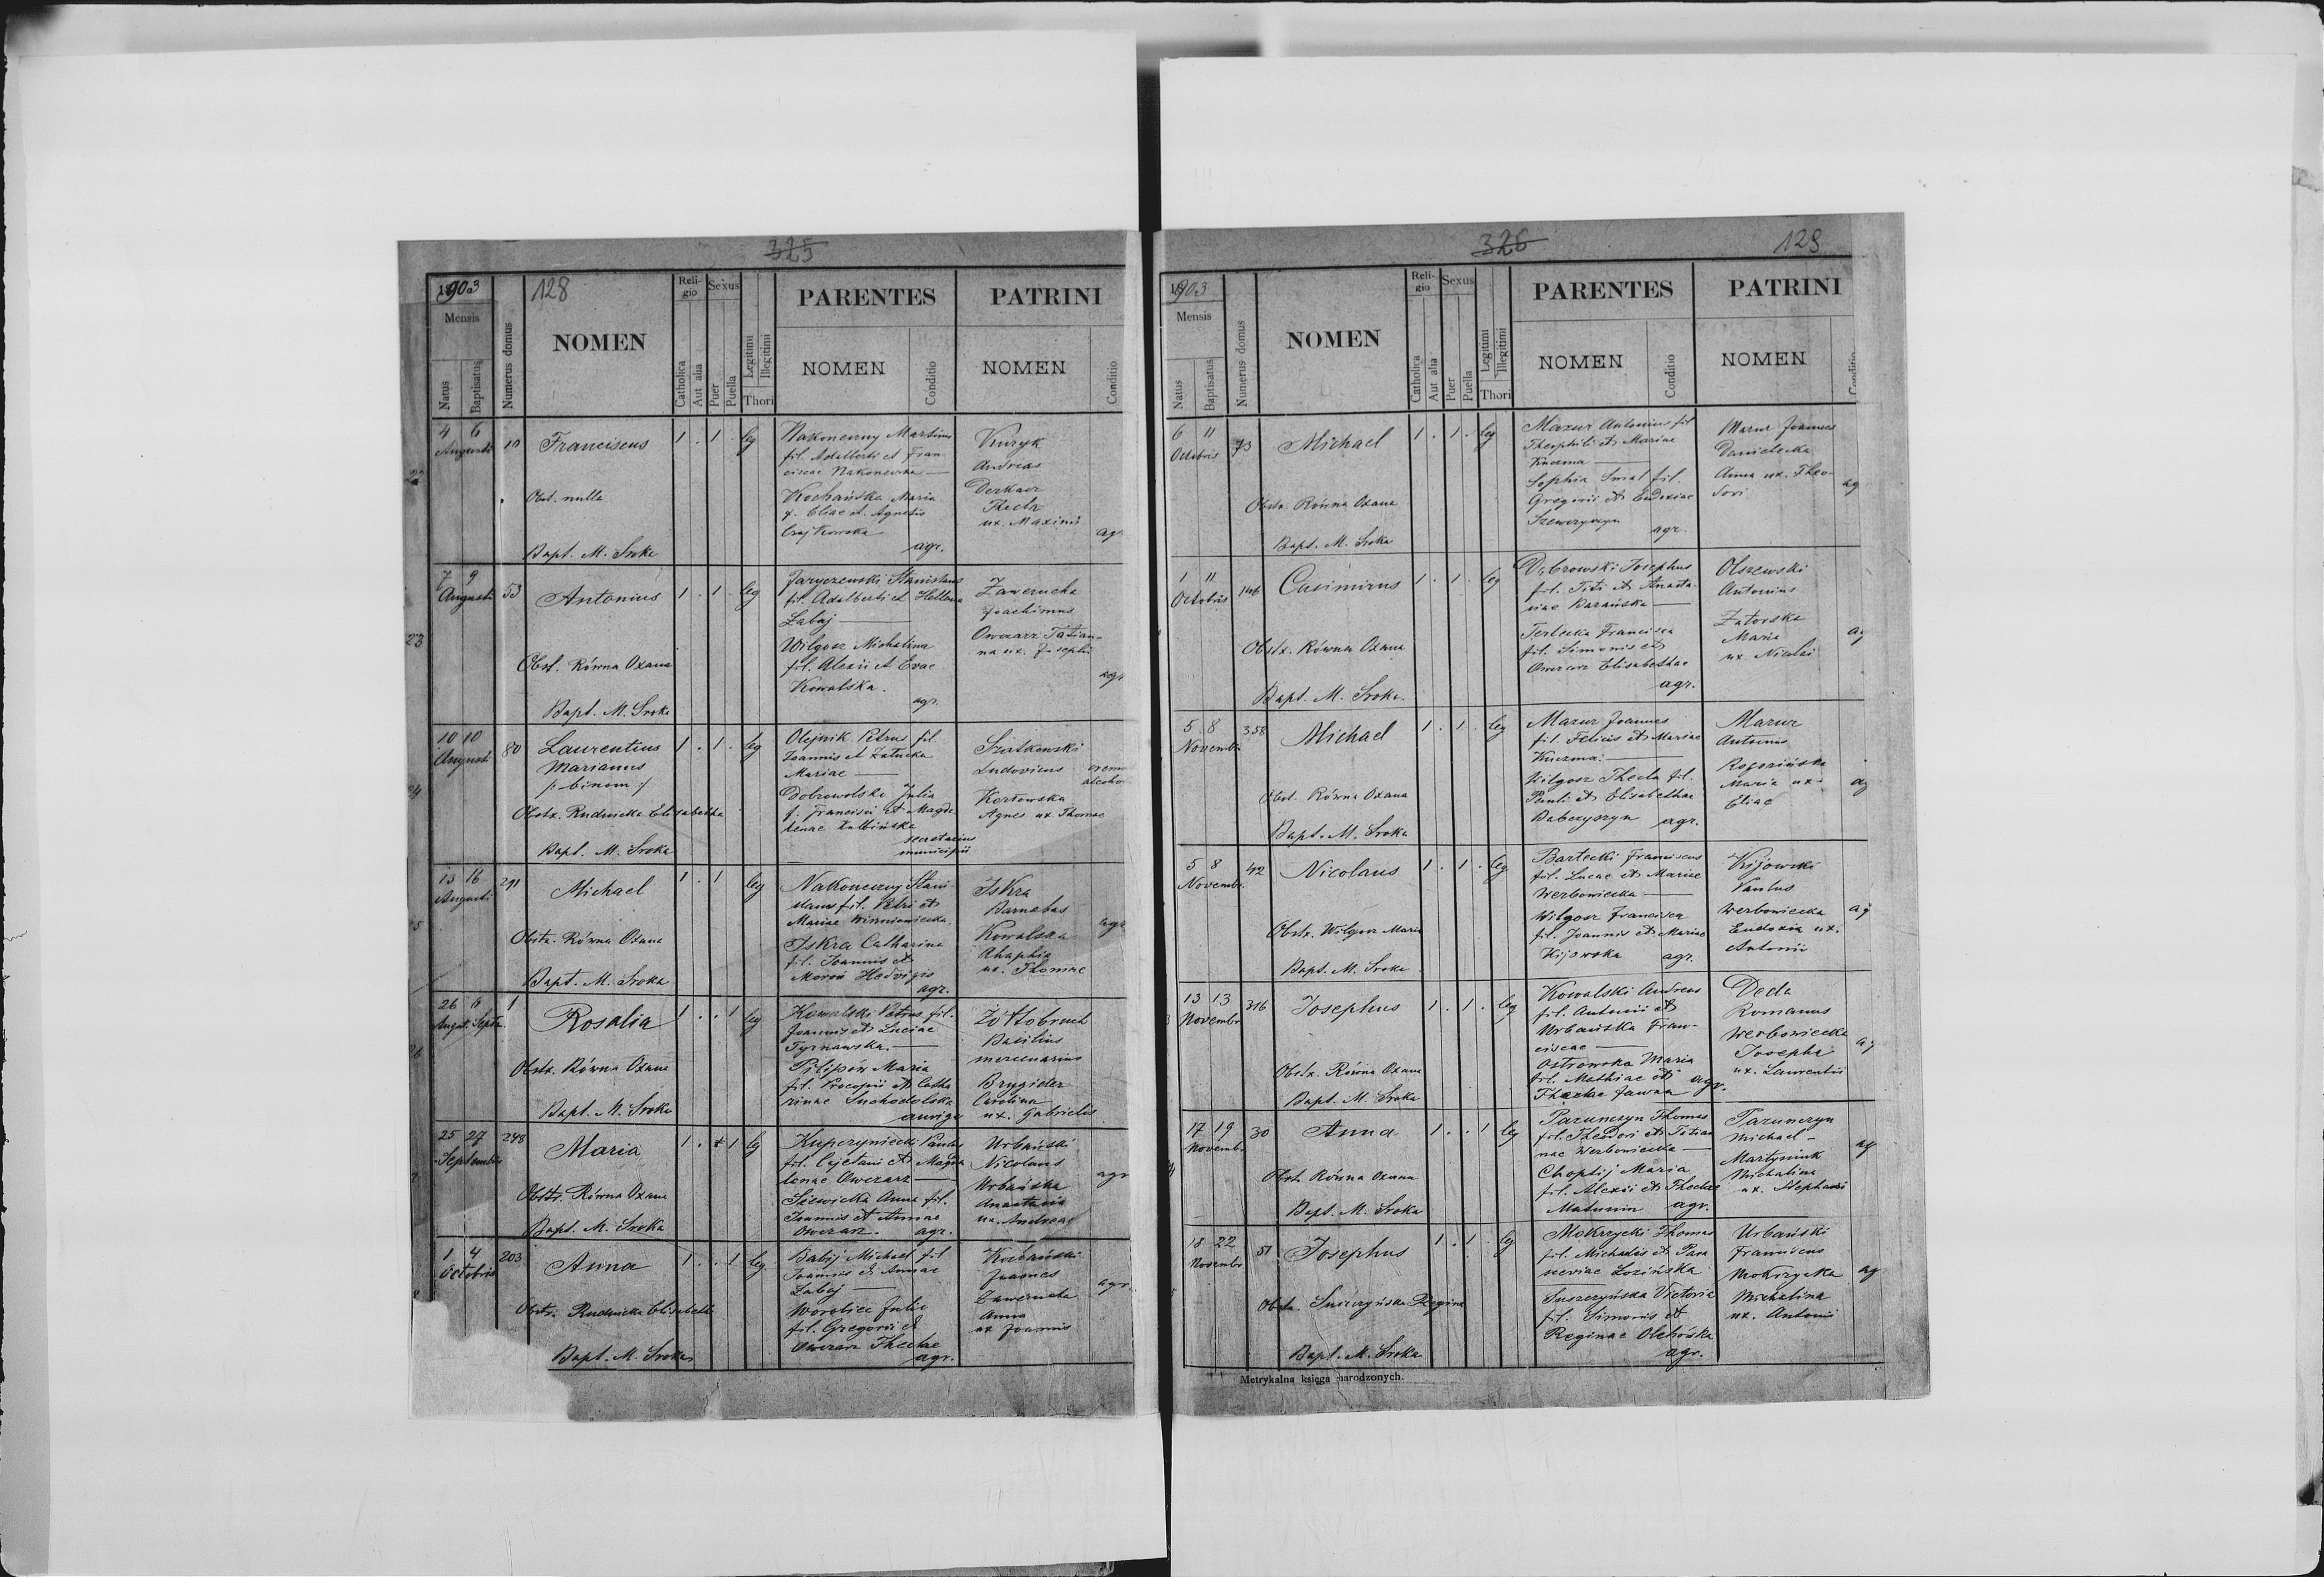 325
1903
Mensis
Natus
Baptisatus
Numerus domus
128
NOMEN
Reli-
gio
Catholica
Aut alia
Sexus
Puer
Puella
Legitimi
Illegitimi
Thori
PARENTES
NOMEN
Conditio
PATRINI
NOMEN
Conditio
4 6
Augusti
10
Franciscus
1 . 1 . leg
Obst. nulla
Bapt. M. Sroka
Nakoneczny Martinus
fil. Adalberti et Fran
ciscae Nakoneczna
Kochańska Maria
f. Eliae et Agnetis
Czajkowska
agr.
Andreas
Derkacz
Thecla
ux. Maximi
ag
23
7 9
Augusti
53
Antonius
1 . 1 . leg
Obst. Równa Oxana
Bapt. M. Sroka
Jaryczewski Stanislaus
fil. Adalberti et Hellena
Zabaj
Wilgosz Michalina
fil. Alexii et Evae
Kowalska.
agr.
Zawerucha
Joachimus
Owczarz Tatian-
na ux. Josephi
agr
10 10
Augusti
80
Laurentius
Marianus
/: binom :/
1 . 1 . leg
Obstr. Rudnicka Elisabetha
Bapt. M. Sroka
Olejnik Petrus fil.
Joannis et Załucka
Mariae
Dobrowolska Julia
f. Francisci et Magda
lenae
secretarius
municipii
Szatkowski
Ludovicus
Kozłowska
Agnes ux Thomae
13 16
Augusti
291
Michael
1 . 1 leg
Obstr. Równa Oxana
Bapt. M. Sroka
Nakoneczny Stani
slaus fil. Petri et
Mariae Wiśniowiecka
Iskra Catharina
fil. Joannis et
Moroń Hedvigis
agr.
Iskra
Barnabas
Kowalska
Ahaphia
ux. Thomae
agr
26 6
August. Septr.
1
Rosalia
1 . . 1 leg
Obstr. Równa Oxana
Bapt. M. Sroka
Kowalski Petrus fil.
Joannis et Luciae
Tyrnawska.
Pilipów Maria
fil. Procopii et Catha
rinae Suchodolska
auriga
Żółtobruch
Basilius
mercenarius
Brygider
Carolina
ux. Gabrielis
25 27
Septembris
248
Maria
1 . 1 leg
Obstr. Równa Oxana
Bapt. M. Sroka
Kupczyniecki Paulus
fil. Cajetani et Magda
lenae Owczarz
Siewicka Anna fil.
Joannis et Annae
Owczarz. agr.
Urbański
Nicolaus
Urbańska
Anastasia
ux. Andreae
agr
1 4
Octobris
203
Anna
1 . . 1 leg.
Obstr. Rudnicka Elisabetha
Bapt. M. Sroka
Babij Michael fil
Joannis et Annae
Zabaj
Worobiec Julia
fil. Gregorii et
Owczarz Theclae
agr.
Kochański
Joannes
Zawerucha
Anna
ux Joannis
agr.
326
129
1903
Mensis
Natus
Baptisatus
Numerus domus
NOMEN
Reli-
gio
Catholica
Aut alia
Sexus
Puer
Puella
Legitimi
Illegitimi
Thori
PARENTES
NOMEN
Conditio
PATRINI
NOMEN
Conditio
6 11
Octobris
73
Michael
1 . 1 . leg
Obstr. Równa Oxana
Bapt. M. Sroka
Mazur Antonius fil
Theophili et Mariae
Kuczma
Sophia Smal fil.
Gregorii et Eudoxiae
Szewczyszyn
agr.
Mazur Joannes
Danielecka
Anna ux. Theo-
dori
ag
1 11
Octobris
146
Casimirus
1 . 1 . leg
Obstr. Równa Oxana
Bapt. M. Sroka.
Dąbrowski Josephus
fil. Titi et Anasta
siae Barańska
Terlecka Francisca
fil. Simonis et
Owczarz Elisabethae
agr.
Olszewski
Antonius
Zatorska
Maria
ux. Nicolai
ag
5 8
Novembr.
358
Michael
1 . 1 . leg
Obst. Równa Oxana
Bapt. M. Sroka
Mazur Joannes
fil. Felicis et Mariae
Kuczma.
Wilgosz Thecla fil.
Pauli et Elisabethae
Babczyszyn agr.
Mazur
Antonius
Rogozińska
Maria ux.
Eliae
ag
5 8
Novembr.
42
Nicolaus
1 . 1 . leg
Obstr. Wilgosz Maria
Bapt. M. Sroka
Bartecki Franciscus
fil. Lucae et Mariae
Werbowiecka
Wilgosz Francisca
fil. Joannis et Mariae
Kijowska agr.
Kijowski
Paulus
Werbowiecka
Eudoxia ux.
Antonii
ag
13 13
Novembr
316
Josephus
1 . 1 . leg
Obstr. Równa Oxana
Bapt. M. Sroka
Kowalski Andreas
fil. Antonii et
Urbańska Fran-
ciscae
Ostrowska Maria
fil. Mathiae et agr.
Theclae Jawna
Deda
Romanus
Werbowiecka
Josepha
ux. Laurentii
17 19
Novembr
30
Anna
1 . . 1 leg
Obstr. Równa Oxana
Bapt. M. Sroka
Parunczyn Thomas
fil. Theodori et Tatian
nae Werbowiecka
Choptij Maria
fil. Alexii et Theclae
agr.
Parunczyn
Michael
Martyniuk
Michalina
ux. Stephani
ag
18 22
Novembr
51
Josephus
1 . 1 . leg
Obstr. Suszczyńska Regina
Bapt. M. Sroka
Mokrzycki Thomas
fil. Michaelis et Para
sceviae Lozińska
Suszczyńska Victoria
fil. Simonis et
Reginae Olchowska
agr.
Urbański
Franciscus
Mokrzycka
Michalina
ux. Antonii
ag
Metrykalna księga narodzonych.